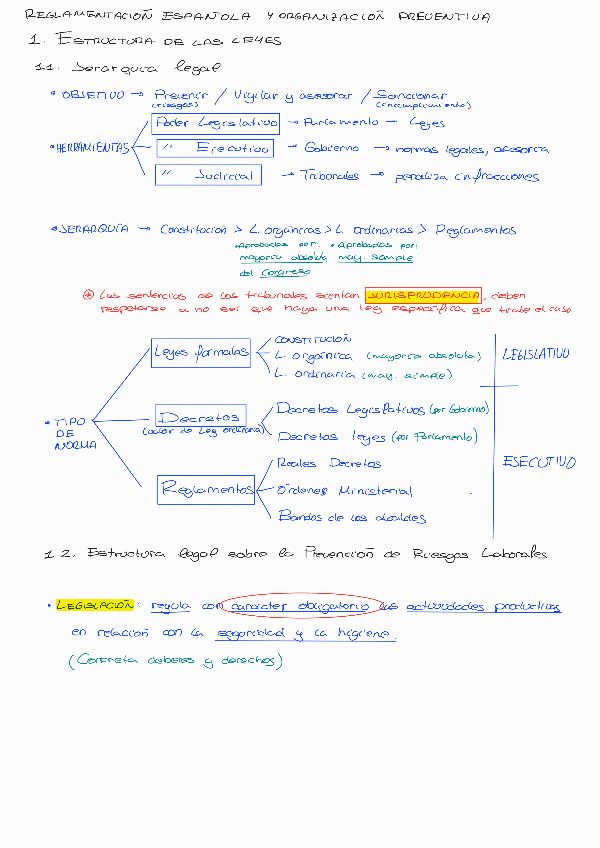 REGLAMENTACIÓN ESPAÑOLA Y ORGANIZACIÓN PREVENTIVA
1. ESTRUCTURA DE LAS LEYES
1.1. Jerarquía legal
• OBJETIVO → Prevenir / Vigilar y asesorar / Sancionar
(riesgos) (incumplimiento)
• HERRAMIENTAS
Poder Legislativo → Parlamento → Leyes
" Ejecutivo → Gobierno → normas legales, asesoría
" Judicial → Tribunales → penaliza infracciones
• JERARQUÍA → Constitución > L. orgánicas > L. ordinarias > Reglamentos
• Aprobadas por: • Aprobadas por:
mayoría absoluta may. simple
del Congreso
* Las sentencias de los tribunales sientan JURISPRUDENCIA, deben
respetarse a no ser que haya una ley específica que trate el caso
• TIPO DE NORMA
Leyes formales
CONSTITUCIÓN
L. orgánica (mayoría absoluta)
L. ordinaria (may. simple)
LEGISLATIVO
Decretos
(valor de Ley ordinaria)
Decretos Legislativos (por Gobierno)
Decretos leyes (por Parlamento)
Reglamentos
Reales Decretos
Órdenes Ministerial
Bandos de los alcaldes
EJECUTIVO
1.2. Estructura legal sobre la Prevención de Riesgos Laborales
• LEGISLACIÓN: regula con carácter obligatorio las actividades productivas
en relación con la seguridad y la higiene.
(Concreta deberes y derechos)